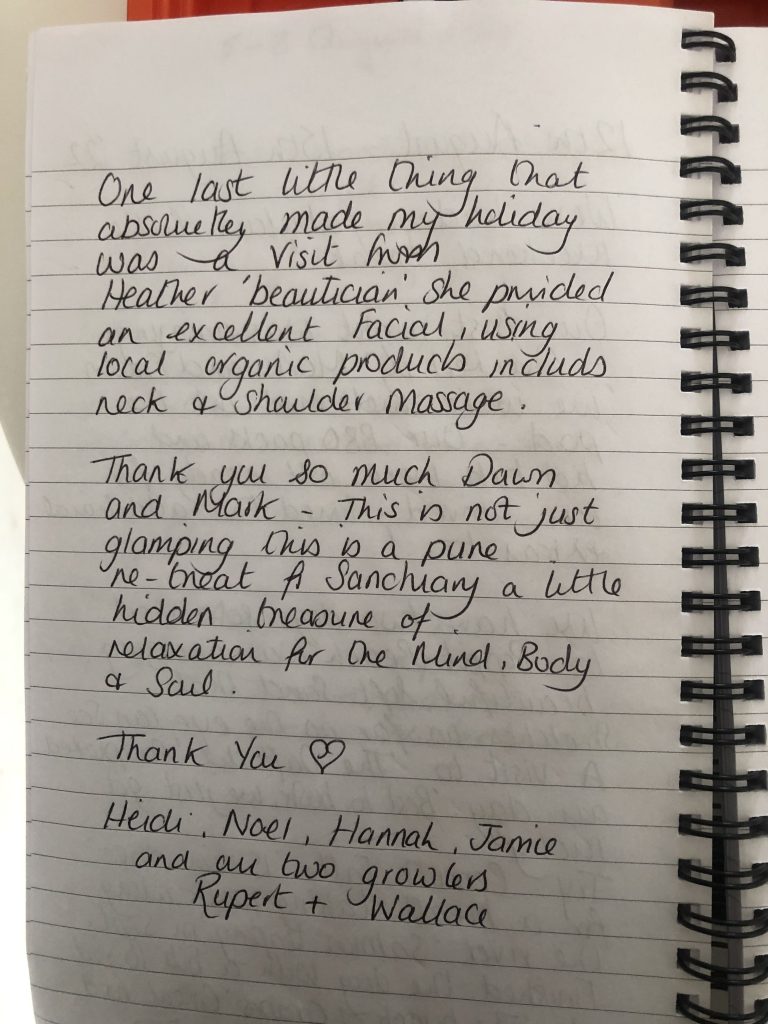 One last little thing that
absolutely made my holiday
was a visit from
Heather 'beautician' she provided
an excellent Facial, using
local organic products includs
neck & Shoulder Massage.
Thank you so much Dawn
and Mark - This is not just
glamping this is a pure
re-treat A Sanctuary a little
hidden treasure of
relaxation for the Mind, Body
& Soul.
Thank You ♡
Heidi, Noel, Hannah, Jamie
and our two growlers
Rupert + Wallace